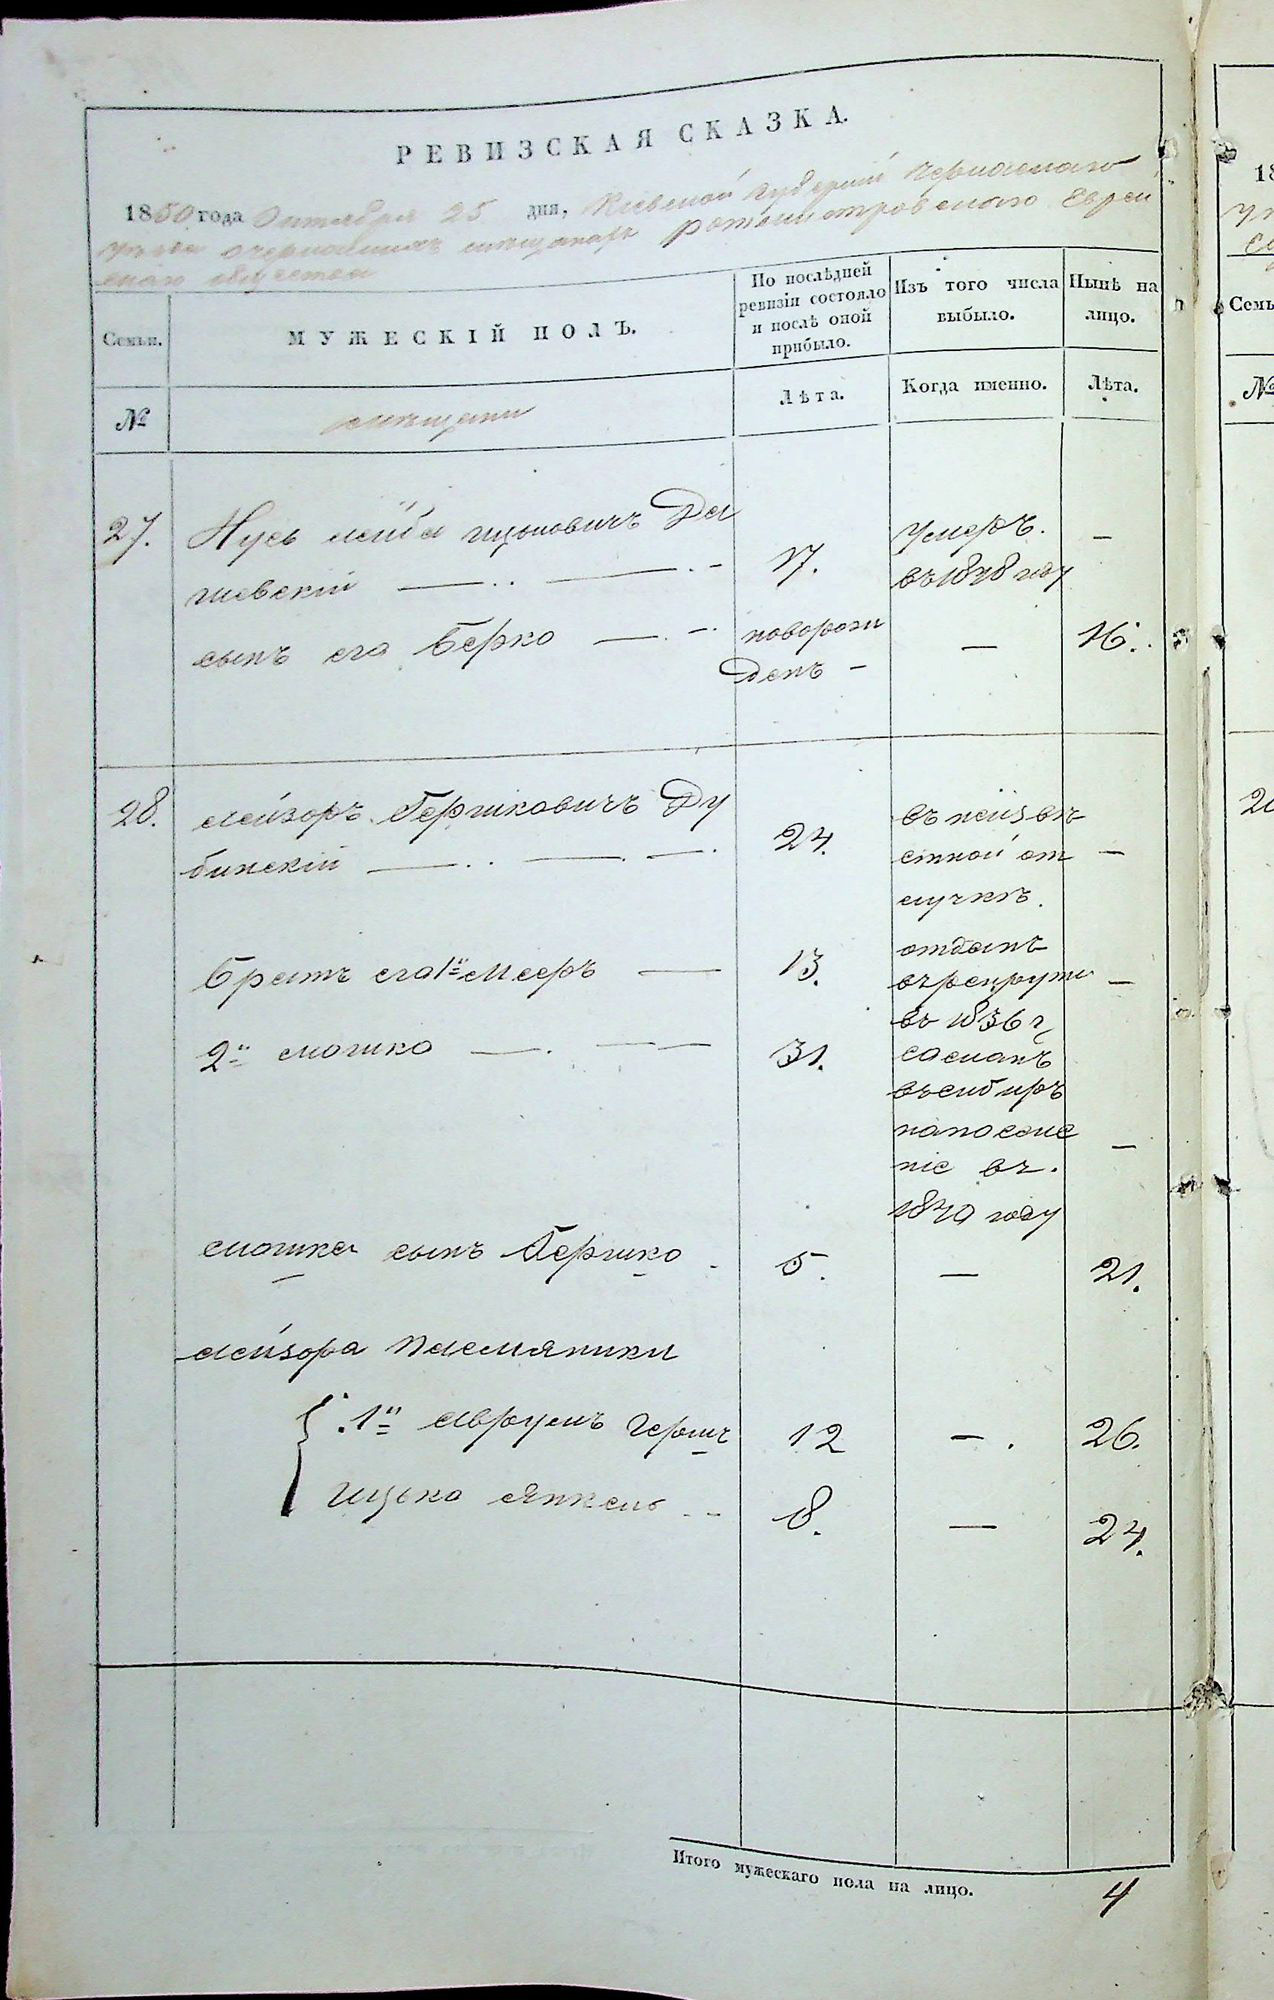 РЕВИЗСКАЯ СКАЗКА.
1850 года Октября 25 дня, Кіевской губерніи Черкаскаго
уѣзда о черкаскихъ мѣщанахъ ротмистровскаго Евреи
скаго общества
Семьи.
МУЖЕСКІЙ ПОЛЪ.
По послѣдней
ревизіи состояло
и послѣ оной
прибыло.
Изъ того числа
выбыло.
Нынѣ на
лицо.
№
мѣщане
Лѣта.
Когда именно.
Лѣта.
27.
Нусь лейба ицковичъ Да
шевскій
17.
умеръ.
въ 1848 году
—
сынъ его Берко
новорож
денъ
—
16.
28.
лейзоръ Гершковичъ Ду
бинскій
24.
въ неизвѣ
стной от
лучкѣ.
—
братъ его 1й мееръ
13.
отданъ
въ рекруты
въ 1836 г
—
2й мошко
31.
сосланъ
въ сибиръ
на поселе
ніе въ.
1840 году
—
мошка сынъ Гершко
5.
—
21.
лейзора племяники
1й аврумъ Гершъ
12
—.
26.
ицько янкель
8.
—
24.
Итого мужескаго пола на лицо.
4
18
Семь
№